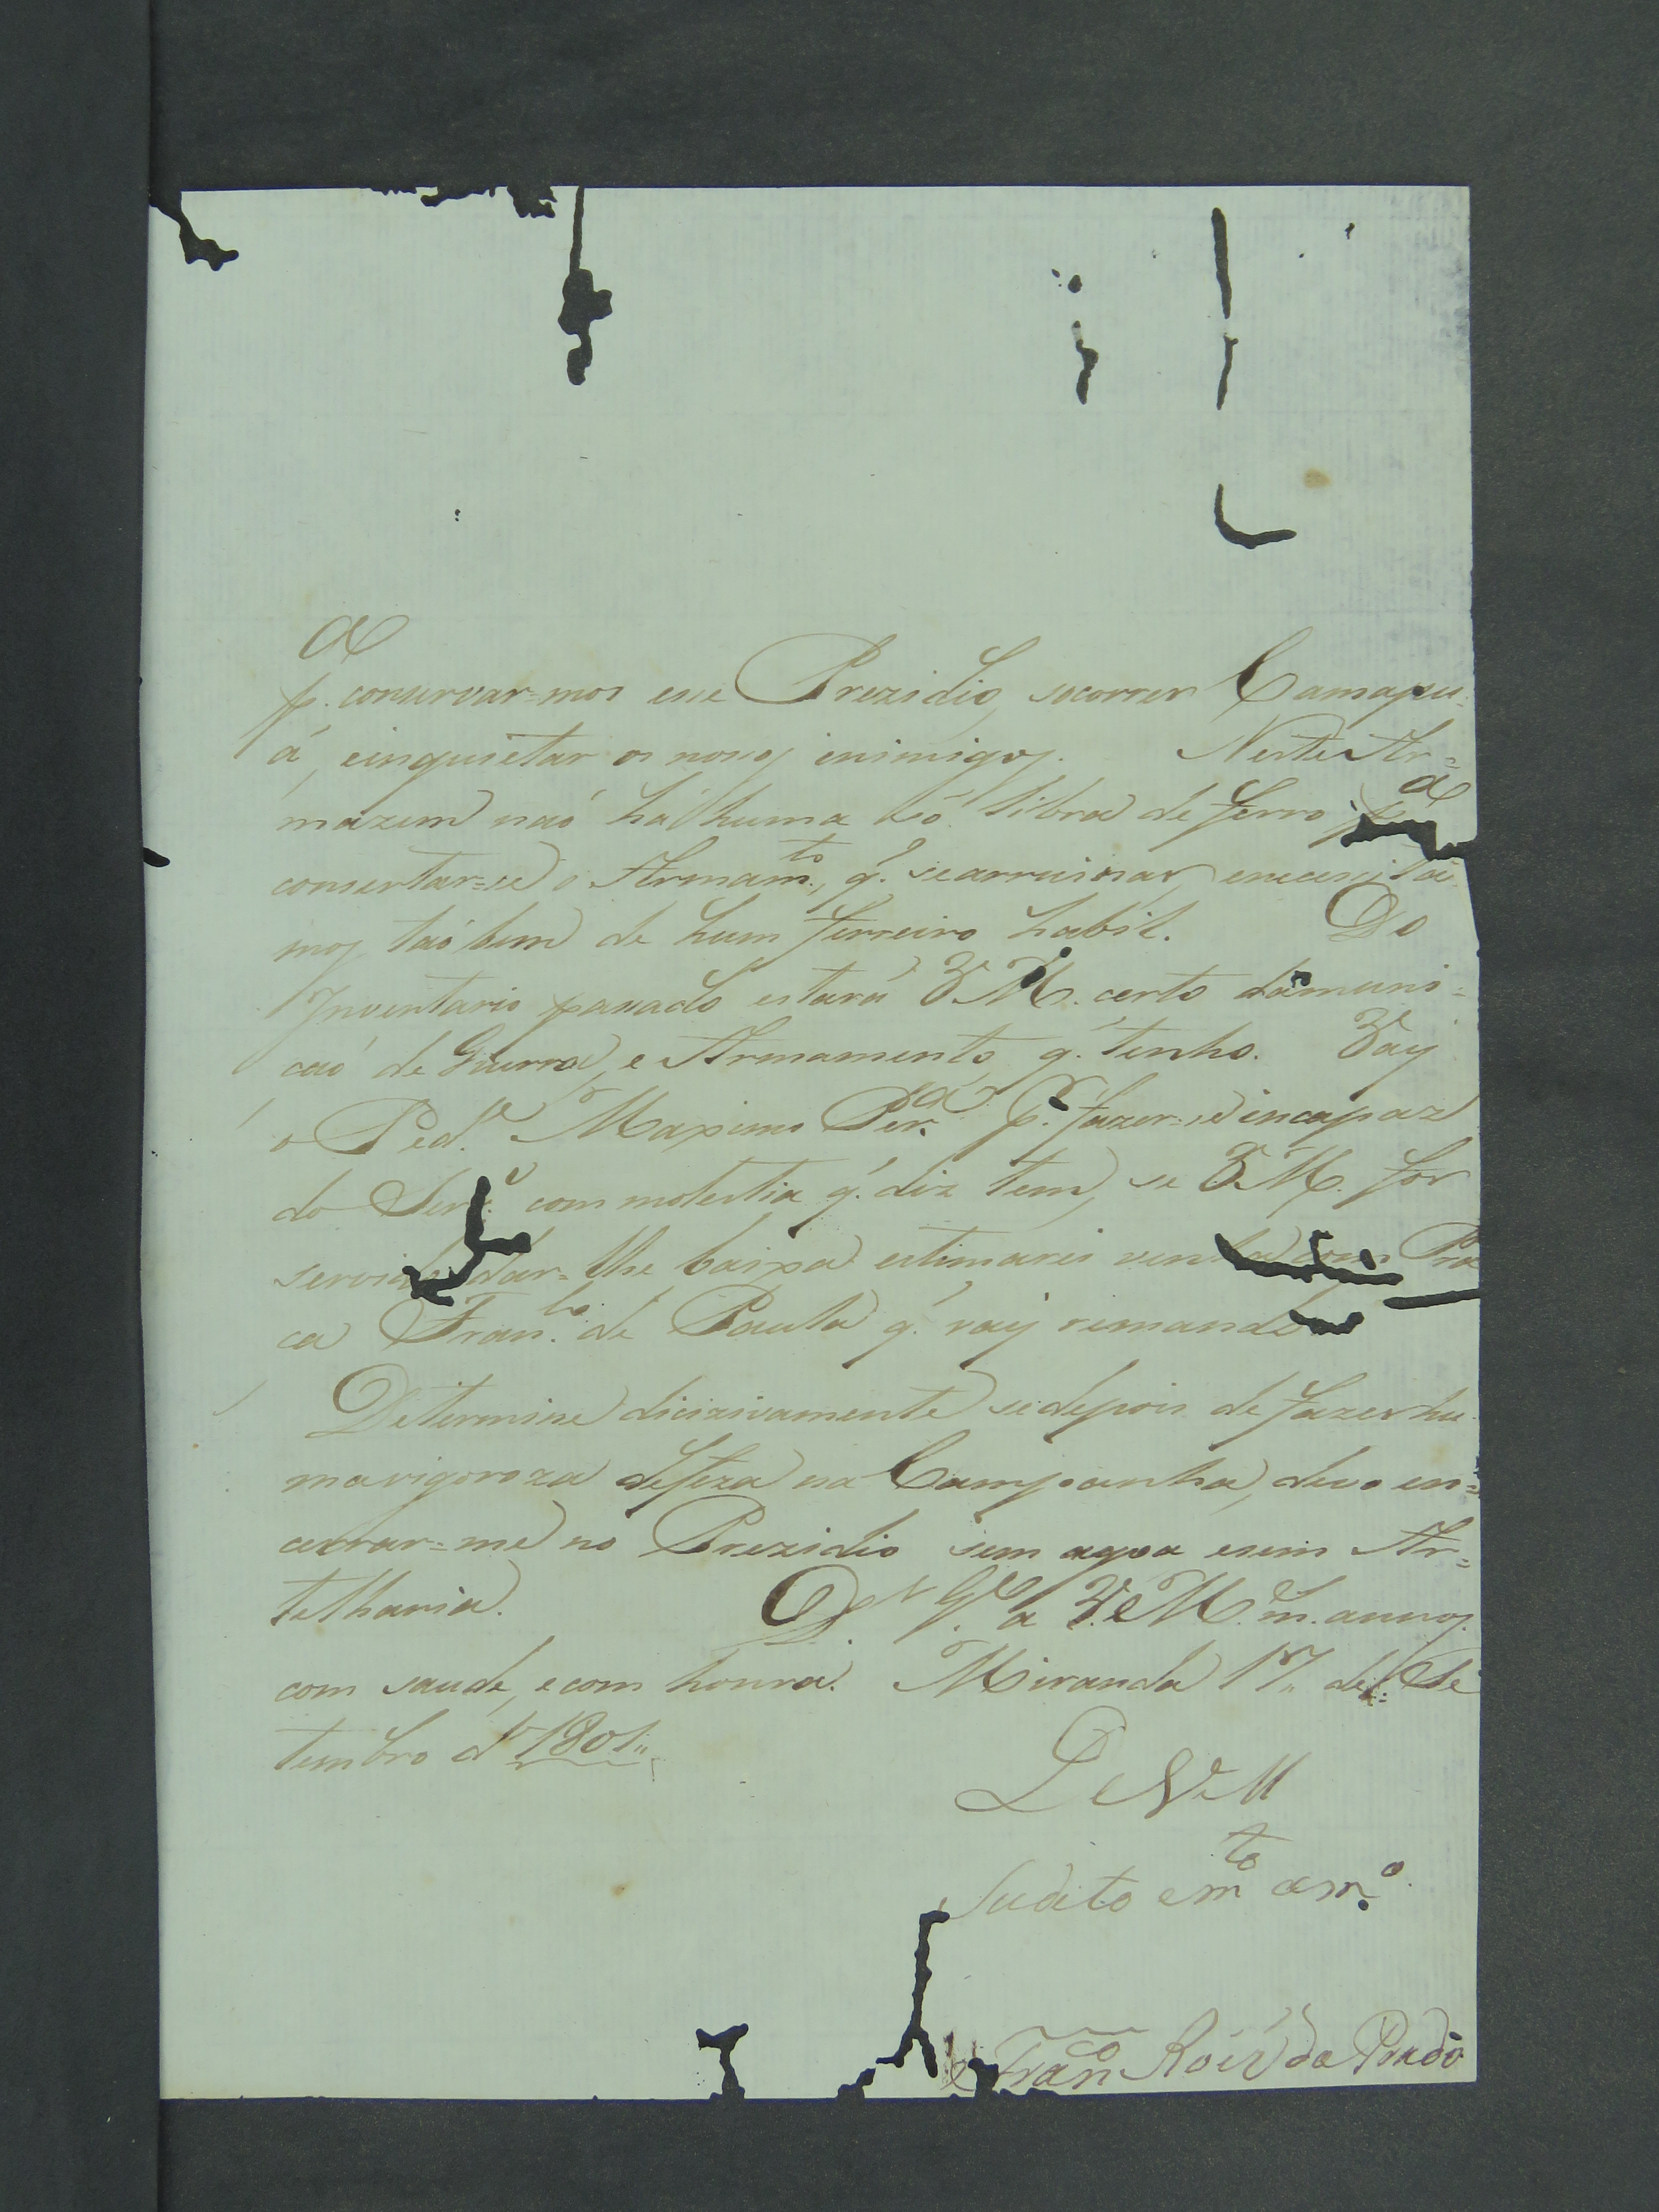 p.ª conservar=mos esse Prezidio, socorrer Camapu=
á, einquietar os nosos inimigos. Neste Ar=
mazem naó há huma só libra de ferro p.ª
consertar=se o Armam.to, q. searruinar, enecesita-
mos taóbem de hum ferreiro habil. Do
Inventario passado estará V M. certo da muni=
caó de Guerra, e Armamento q. tenho. Vay
o Ped.e Maximo Per.ª p.r fazer=se incapaz
do Serv.º com molestia q. diz tem, se V.M. for
servido dar=lhe baixa estimarei venha com Pra
ca Fran.co de Paula q. vay remando
Determine dicizivamente sedepois de fazer hu-
mavigoroza defeza na Campanha, devo en=
cerrar=me no Prezidio sem agoa esem Ar=
telharia. D.s G.e a V. M.ce m. annos
com saude, ecom honra. Miranda 17,, de Se
tembro d' 1801,,
De V M
Sudito em.to am.º
Fran.co Roiz' do Prado